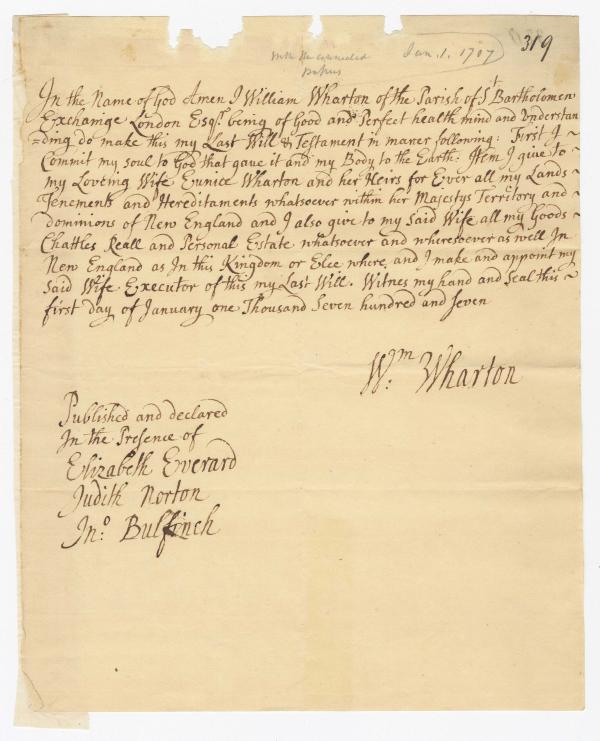 319
Jan. 1. 1707
In the Name of God Amen I William Wharton of the Parish of St Bartholomew
Exchainge London Esqr. being of Good and Perfect health mind and Understan
=ding do make this my Last Will & Testament in maner following: First I
Commit my soul to God that gave it and my Body to the Earth: Item I give to
my Loveing Wife Eunice Wharton and her Heirs for Ever all my Lands
Tenements and Hereditaments whatsoever within her Majestys Territory and
dominions of New England and I also give to my Said Wife all my Goods
Chattles Reall and Personal Estate whatsoever and wheresoever as well In
New England as In this Kingdom or Elce where, and I make and appoint my
Said Wife Executor of this my Last Will. Witnes my hand and Seal this
first day of January one Thousand Seven hundred and Seven
Wm. Wharton
Published and declared
In the Presence of
Elizabeth Everard
Judith Norton
Jno. Bulfinch